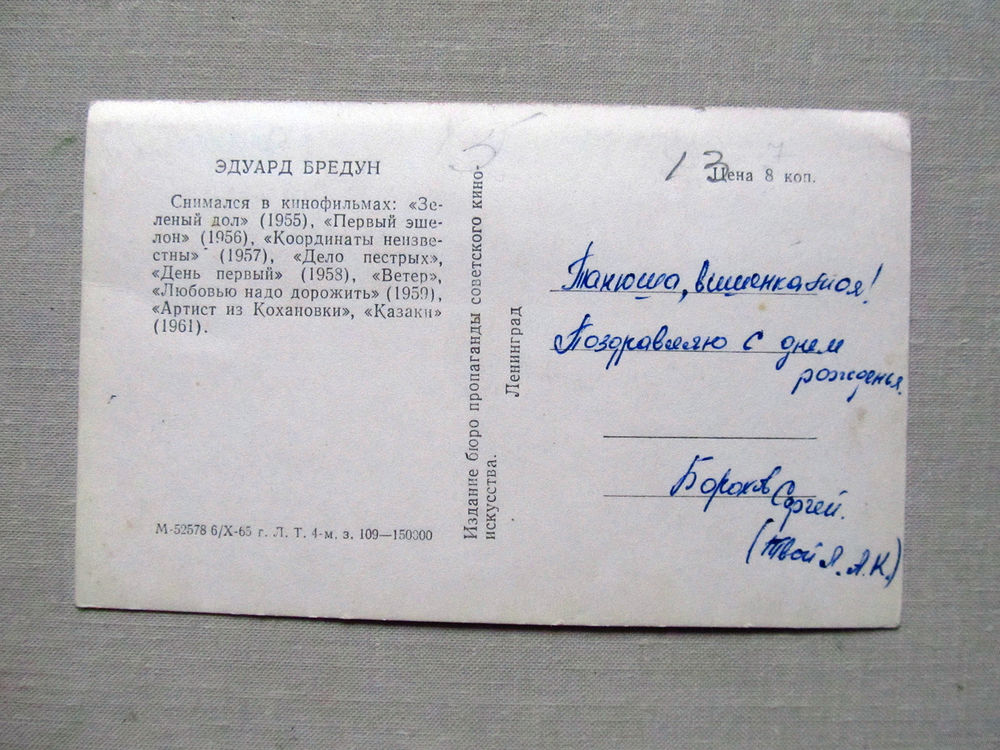 ЭДУАРД БРЕДУН
Снимался в кинофильмах: «Зе-
леный дол» (1955), «Первый эше-
лон» (1956), «Координаты неизве-
стны» (1957), «Дело пестрых»,
«День первый» (1958), «Ветер»,
«Любовью надо дорожить» (1959),
«Артист из Кохановки», «Казаки»
(1961).
М-52578 6/X-65 г. Л. Т. 4-м. з. 109—150000
Издание бюро пропаганды советского кино-
искусства.
Ленинград
13
Цена 8 коп.
Танюша, вишенка моя!
Поздравляю с днем
рожденья.
Борохов Сергей.
(Твой Я. А. К.)